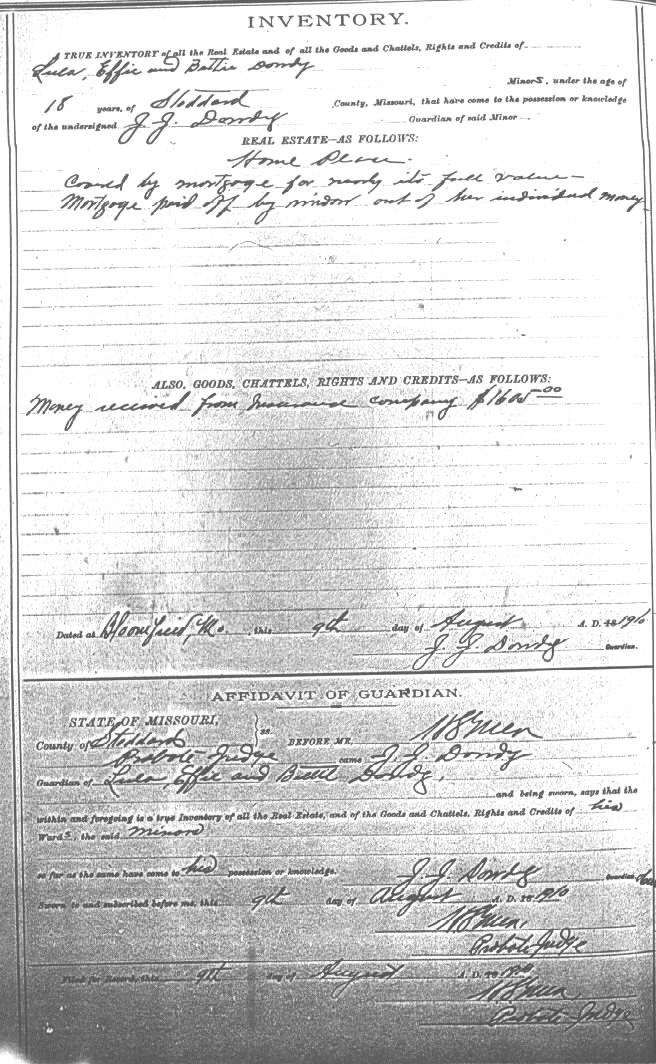 INVENTORY.
A TRUE INVENTORY of all the Real Estate and of all the Goods and Chattels, Rights and Credits of
Lula, Effie and Bettie Dowdy
Minors, under the age of
18 years, of Stoddard County, Missouri, that have come to the possession or knowledge
of the undersigned J. J. Dowdy Guardian of said Minor
REAL ESTATE—AS FOLLOWS:
Home Place.
Covered by mortgage for nearly its full value—
Mortgage paid off by widow out of her individual money
ALSO, GOODS, CHATTELS, RIGHTS AND CREDITS—AS FOLLOWS:
Money received from Insurance Company $1605.00
Dated at Bloomfield, Mo. this 9th day of August A. D. 18 1910
J. J. Dowdy Guardian.
AFFIDAVIT OF GUARDIAN.
STATE OF MISSOURI,
County of Stoddard ss. BEFORE ME,
Probate Judge came J. J. Dowdy
Guardian of Lula, Effie and Bettie Dowdy,
and being sworn, says that the
within and foregoing is a true Inventory of all the Real Estate, and of the Goods and Chattels, Rights and Credits of his
Wards, the said minors
so far as the same have come to his possession or knowledge. J. J. Dowdy Guardian
Sworn to and subscribed before me, this 9th day of August A. D. 18 1910
Probate Judge
Filed for Record, this 9th day of August A. D. 18 1910
Probate Judge